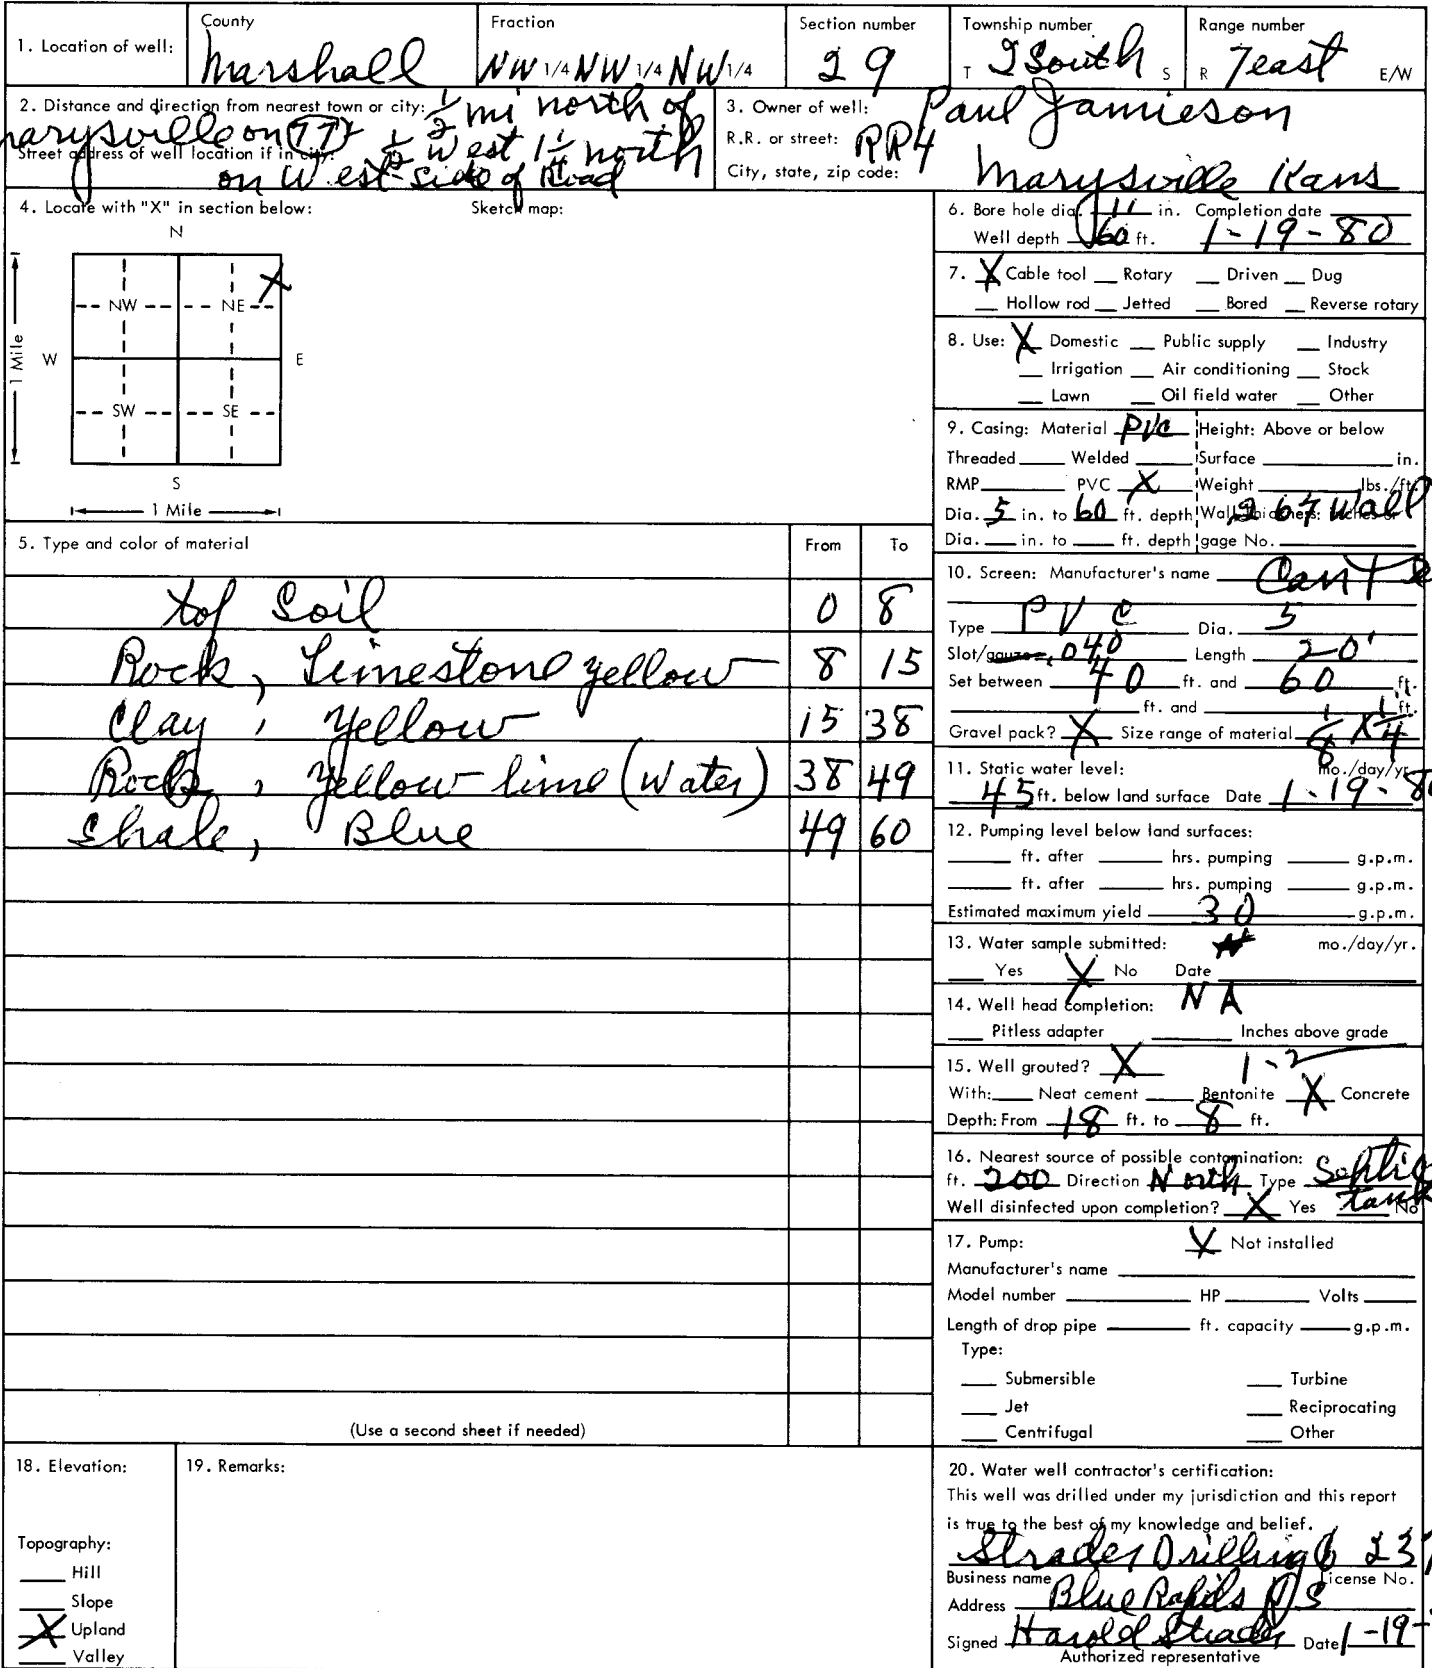 1. Location of well: County Marshall Fraction NW 1/4 NW 1/4 NW 1/4 Section number 29 Township number T 2 South S Range number R 7 east E/W
2. Distance and direction from nearest town or city: 1/2 mi north of
marysville on 77 1/2 west 1 1/4 north
Street address of well location if in city:
on West side of Road
3. Owner of well: Paul Jamieson
R.R. or street: RR4
City, state, zip code: Marysville Kans
4. Locate with "X" in section below: Sketch map:
N
X
NW NE
W E
1 Mile
SW SE
S
1 Mile
5. Type and color of material From To
top Soil 0 8
Rock, Limestone yellow 8 15
Clay, Yellow 15 38
Rock, Yellow lime (Water) 38 49
Shale, Blue 49 60
(Use a second sheet if needed)
6. Bore hole dia. 11 in. Completion date
Well depth 60 ft. 1-19-80
7. X Cable tool Rotary Driven Dug
Hollow rod Jetted Bored Reverse rotary
8. Use: X Domestic Public supply Industry
Irrigation Air conditioning Stock
Lawn Oil field water Other
9. Casing: Material PVC Height: Above or below
Threaded Welded Surface in.
RMP PVC X Weight lbs./ft.
Dia. 5 in. to 60 ft. depth Wall thickness: inches or 267 wall
Dia. in. to ft. depth gage No.
10. Screen: Manufacturer's name
Type PVC Dia. 5
Slot/gauze .040 Length 20'
Set between 40 ft. and 60 ft.
ft. and ft.
Gravel pack? X Size range of material 1/8 X 1/4
11. Static water level: mo./day/yr.
45 ft. below land surface Date 1-19-80
12. Pumping level below land surfaces:
ft. after hrs. pumping g.p.m.
ft. after hrs. pumping g.p.m.
Estimated maximum yield 30 g.p.m.
13. Water sample submitted: mo./day/yr.
Yes X No Date
14. Well head completion: NA
Pitless adapter Inches above grade
15. Well grouted? X 1-2
With: Neat cement Bentonite X Concrete
Depth: From 18 ft. to 8 ft.
16. Nearest source of possible contamination:
ft. 200 Direction North Type Septic
Well disinfected upon completion? X Yes tank No
17. Pump: X Not installed
Manufacturer's name
Model number HP Volts
Length of drop pipe ft. capacity g.p.m.
Type:
Submersible Turbine
Jet Reciprocating
Centrifugal Other
18. Elevation:
Topography:
Hill
Slope
X Upland
Valley
19. Remarks:
20. Water well contractor's certification:
This well was drilled under my jurisdiction and this report
is true to the best of my knowledge and belief.
Strader Drilling 237
Business name License No.
Address Blue Rapids KS
Signed Harold Strader Date 1-19-
Authorized representative